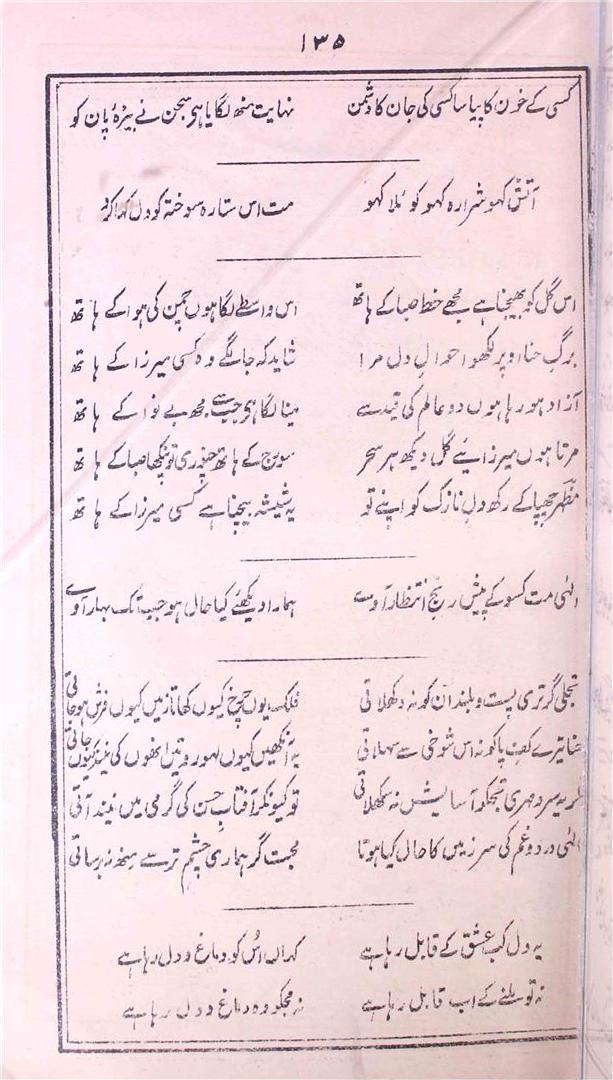 ۱۳۵
کسی کے خون کا پیاسا کسی کی جان کا دشمن نہایت منھ لگایا ہی سجن نے بیڑہ پان کو
آتش کہو شرارہ کہو کوئلا کہو مت اس ستارہ سوختہ کو دل کہا کرو
اس گل کو بھیجنا ہے مجھے خط صبا کے ہاتھ اس واسطے لگا ہوں چمن کی ہوا کے ہاتھ
برگِ حنا اوپر لکھو احوالِ دل مرا شاید کہ جا لگے وہ کسی میرزا کے ہاتھ
آزاد ہو رہا ہوں دو عالم کی قید سے مینا لگا ہی جب سے مجھ بے نوا کے ہاتھ
مرتا ہوں میرزائے گل دیکھ ہر سحر سورج کے ہاتھ چونری تو پنکھا صبا کے ہاتھ
مظہر چھپا کے رکھ دلِ نازک کو اپنے تو یہ شیشہ بیچنا ہے کسی میرزا کے ہاتھ
الٰہی مت کسو کے پیش رنج انتظار آوے ہمارا دیکھئے کیا حال ہو جب تک بہار آوے
تجلی گر تری پست و بلند ان کو نہ دکھلاتی فلک یوں چرخ کیوں کھاتا زمیں کیوں فرش ہو جاتی
حنا تیرے کفِ پا کو نہ اس شوخی سے سہلاتی یہ آنکھیں کیوں لہو روتیں انھوں کی نیند کیوں جاتی
گر یہ سرد مہری تجکو آسایش نہ سکھلاتی تو کیونکر آفتابِ حسن کی گرمی میں نیند آتی
الٰہی درد و غم کی سرزمیں کا حال کیا ہوتا محبت گر ہماری چشمِ تر سے منھ نہ برساتی
یہ دل کب عشق کے قابل رہا ہے کہاں اُس کو دماغ و دل رہا ہے
نہ تو ملنے کے اب قابل رہا ہے نہ مجکو وہ دماغ و دل رہا ہے